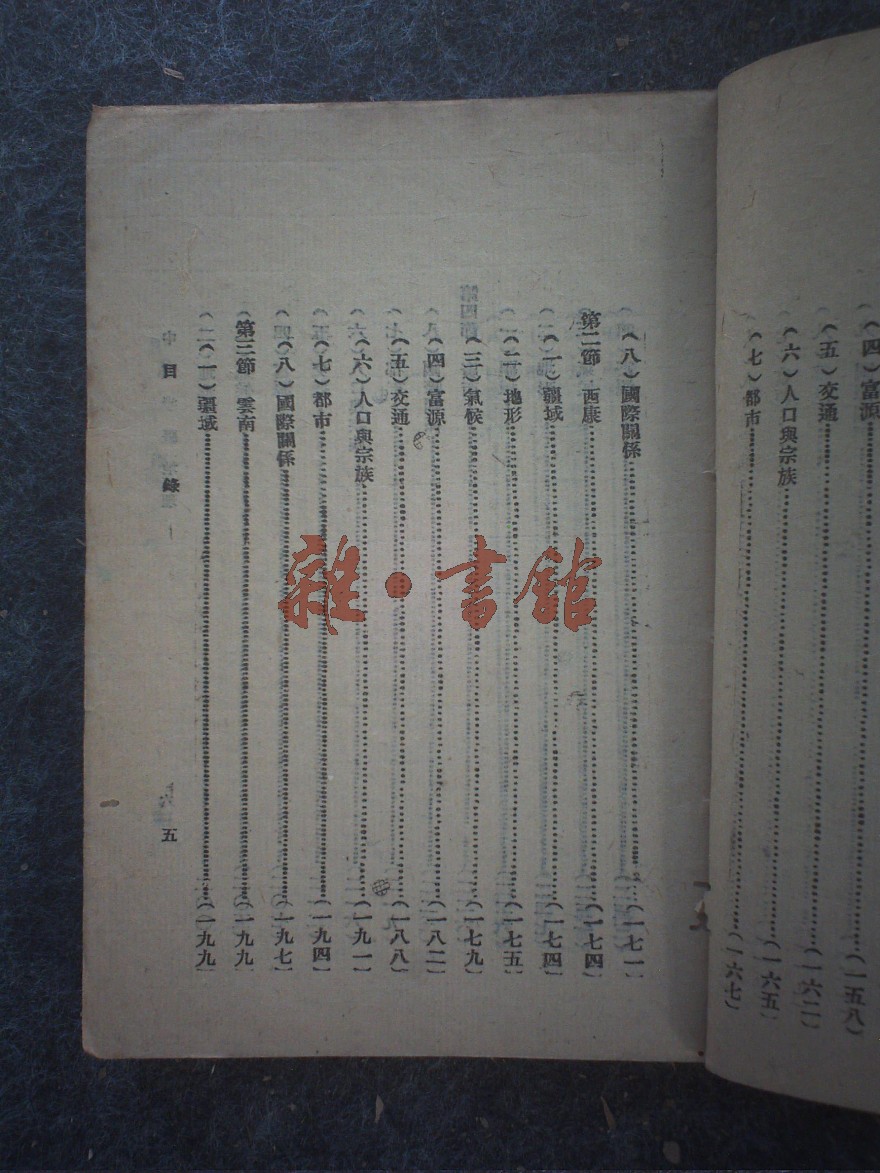 （四）富源……（一五八）
（五）交通……（一六二）
（六）人口與宗族……（一六五）
（七）都市……（一六七）
（八）國際關係……（一七一）
第二節　西康……（一七四）
（一）疆域……（一七四）
（二）地形……（一七五）
（三）氣候……（一七九）
（四）富源……（一八二）
（五）交通……（一八八）
（六）人口與宗族……（一九一）
（七）都市……（一九四）
（八）國際關係……（一九七）
第三節　雲南……（一九九）
（一）疆域……（一九九）
目　錄
五
雜·書館